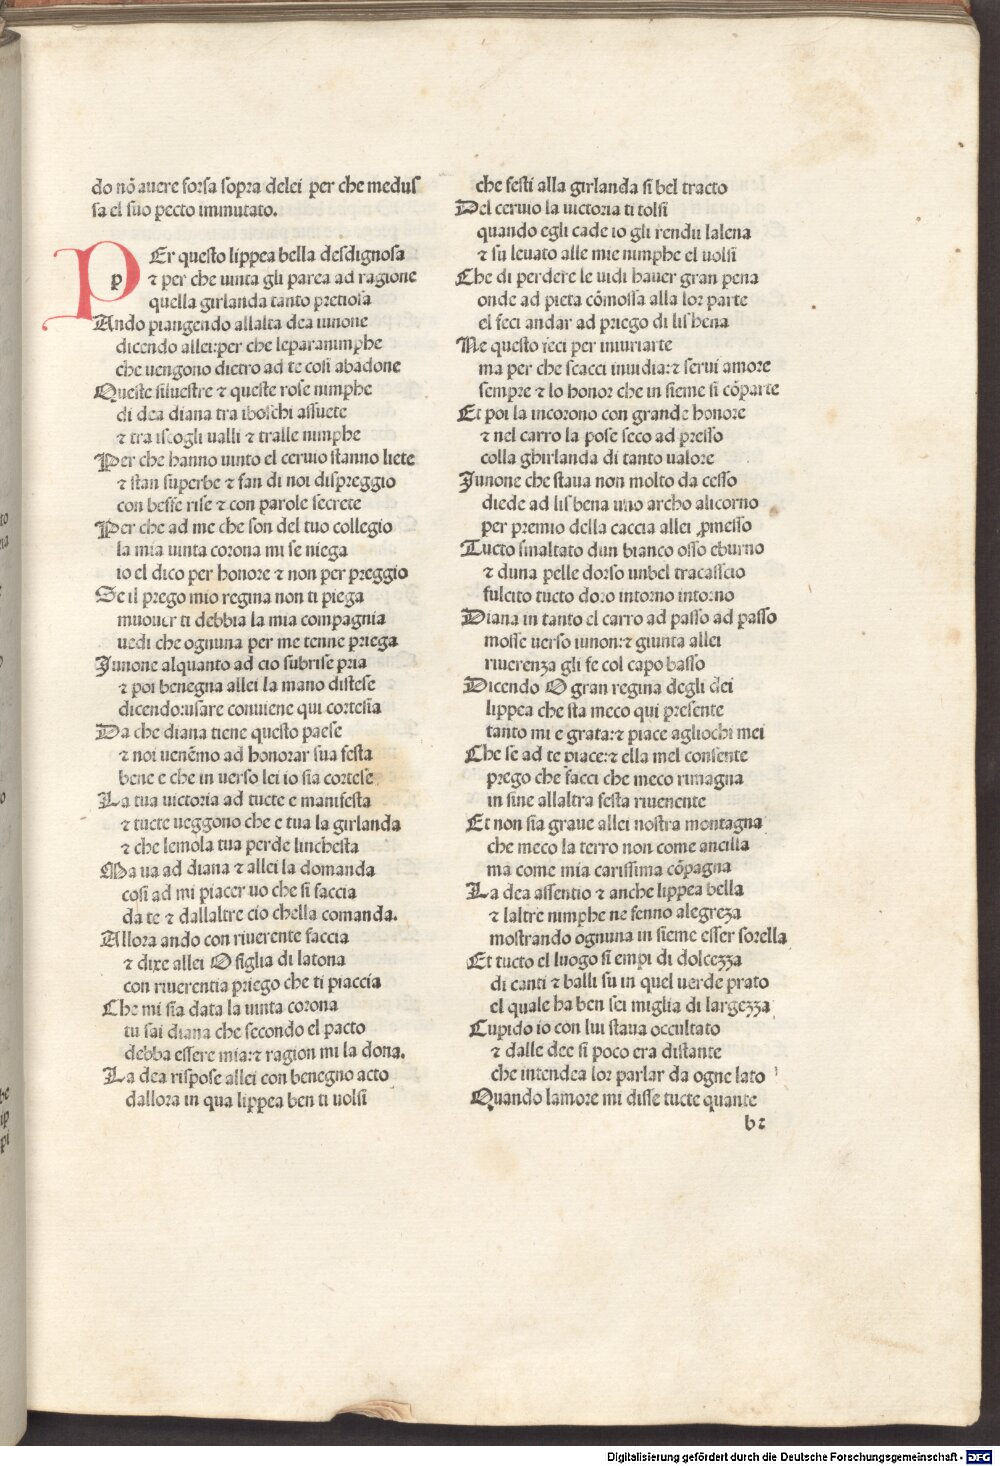 do nō auere forsa sopra delei per che medus
sa el suo pecto immutato.
PEr questo lippea bella desdignosa
⁊ per che uinta gli parea ad ragione
quella girlanda tanto pretiosa
Ando piangendo allalta dea iunone
dicendo allei:per che leparanimphe
che uengono dietro ad te cosi abadone
Queste siluestre ⁊ queste rose nimphe
di dea diana tra iboschi assuete
⁊ tra iscogli ualli ⁊ tralle nimphe
Per che hanno uinto el ceruio stanno liete
⁊ stan superbe ⁊ fan di noi dispreggio
con beffe rise ⁊ con parole secrete
Per che ad me che son del tuo collegio
la mia uinta corona mi se niega
io el dico per honore ⁊ non per preggio
Se il prego mio regina non ti piega
muouer ti debbia la mia compagnia
uedi che ognuna per me tenne priega
Junone alquanto ad cio subrise pria
⁊ poi benegna allei la mano distese
dicendo:usare conuiene qui cortesia
Da che diana tiene questo paese
⁊ noi uenēmo ad honorar sua festa
bene e che in uerso lei io sia cortese
La tua uictoria ad tucte e manifesta
⁊ tucte ueggono che e tua la girlanda
⁊ che lemola tua perde linchesta
Ma ua ad diana ⁊ allei la domanda
cosi ad mi piacer uo che si faccia
da te ⁊ dallaltre cio chella comanda.
Allora ando con riuerente faccia
⁊ dixe allei O figlia di latona
con riuerentia priego che ti piaccia
Che mi sia data la uinta corona
tu sai diana che secondo el pacto
debba essere mia:⁊ ragion mi la dona.
La dea rispose allei con benegno acto
dallora in qua lippea ben ti uolsi
che festi alla girlanda si bel tracto
Del ceruio la uictoria ti tolsi
quando egli cade io gli rendu lalena
⁊ su leuato alle mie nimphe el uolsi
Che di perdere le uidi hauer gran pena
onde ad pieta cōmossa alla lor parte
el feci andar ad priego di lisbena
Ne questo feci per iniuriarte
ma per che scacci inuidia:⁊ serui amore
sempre ⁊ lo honor che in sieme si cōparte
Et poi la incorono con grande honore
⁊ nel carro la pose seco ad presso
colla ghirlanda di tanto ualore
Junone che staua non molto da cesso
diede ad lisbena uno archo alicorno
per premio della caccia allei ꝓmesso
Tucto smaltato dun bianco osso eburno
⁊ duna pelle dorso unbel tracasscio
fulcito tucto doro intorno intorno
Diana in tanto el carro ad passo ad passo
mosse uerso iunon:⁊ giunta allei
riuerenza gli fe col capo basso
Dicendo O gran regina degli dei
lippea che sta meco qui presente
tanto mi e grata:⁊ piace agliochi mei
Che se ad te piace:⁊ ella mel consente
prego che facci che meco rimagna
in fine allaltra festa riuenente
Et non sia graue allei nostra montagna
che meco la terro non come ancilla
ma come mia carissima cōpagna
La dea assentio ⁊ anche lippea bella
⁊ laltre nimphe ne fenno alegreza
mostrando ognuna in sieme esser sorella
Et tucto el luogo si empi di dolcezza
di canti ⁊ balli su in quel uerde prato
el quale ha ben sei miglia di largezza
Cupido io con lui staua occultato
⁊ dalle dee si poco era distante
che intendea lor parlar da ogne lato
Quando lamore mi disse tucte quante
b2
Digitalisierung gefördert durch die Deutsche Forschungsgemeinschaft - DFG